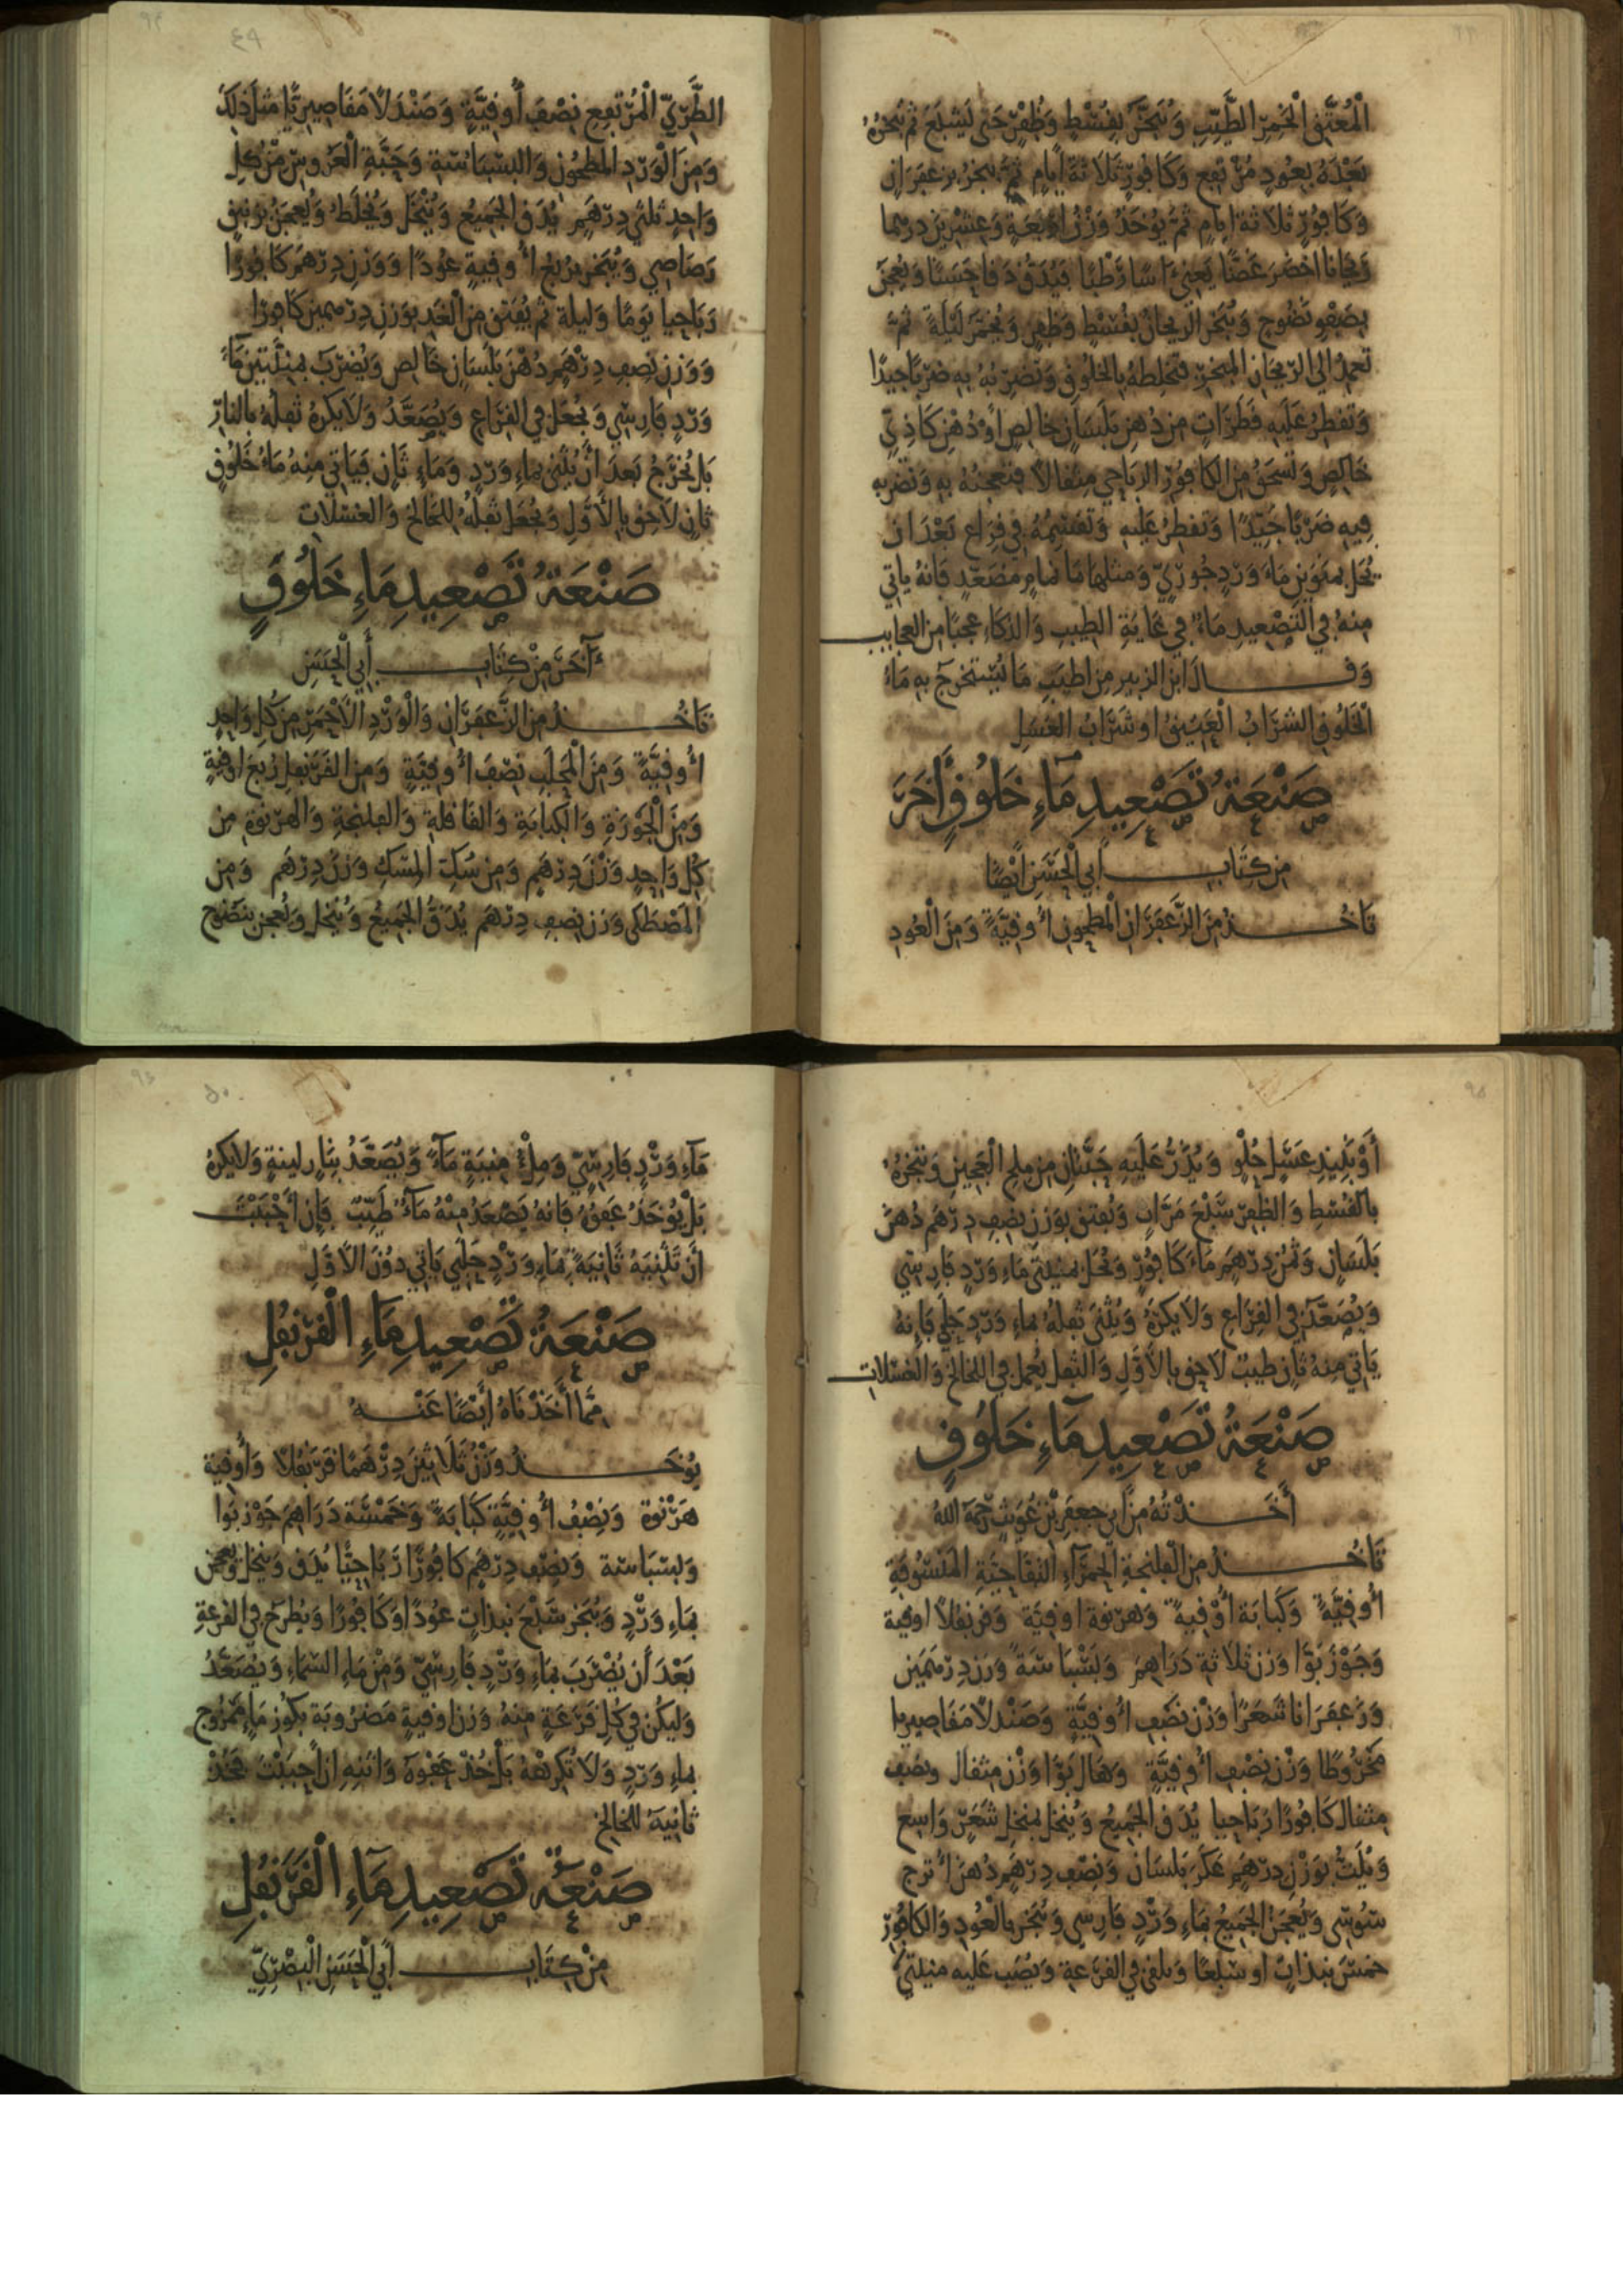 المُعَتَّقِ الخَمِرِ الطَّيِّبِ وَتُبَخِّرُ بِقُسْطٍ وَظُفْرٍ حَتَّى يَشْبَعَ ثُمَّ تُبَخِّرُهُ
بَعْدَهُ بِعُودٍ مُرْتَفِعٍ وَكَافُورٍ ثَلَاثَةَ أَيَّامٍ ثُمَّ يُبَخَّرُ بِزَعْفَرَانٍ
وَكَافُورٍ ثَلَاثَةَ أَيَّامٍ ثُمَّ يُؤْخَذُ وَزْنُ أَرْبَعَةٍ وَعِشْرِينَ دِرْهَمًا
رَيْحَانًا أَخْضَرَ غَضًّا يَعْنِي ءَاسًا رَطْبًا فَيُدَقُّ دَقًّا حَسَنًا وَيُعْجَنُ
بِصَفْوِ نَضُوحٍ وَيُبَخَّرُ الرَّيْحَانُ بِقُسْطٍ وَظُفْرٍ وَيُخَمَّرُ لَيْلَةً ثُمَّ
تَعْمِدُ إِلَى الرَّيْحَانِ المُبَخَّرِ فَتَخْلِطُهُ بِالخَلُوقِ وَتَضْرِبُهُ بِهِ ضَرْبًا جَيِّدًا
وَتَقْطُرُ عَلَيْهِ قَطَرَاتٍ مِنْ دُهْنِ بَلَسَانٍ خَالِصٍ أَوْ دُهْنِ كَاذِيٍّ
خَالِصٍ وَتَسْحَقُ مِنَ الكَافُورِ الرَّبَاحِي مِثْقَالًا فَتَعْجِنُهُ بِهِ وَتَضْرِبُهُ
فِيهِ ضَرْبًا جَيِّدًا وَتَقْطُرُ عَلَيْهِ وَتَقْسِمُهُ فِي قِرَاعٍ بَعْدَ أَنْ
يُحَلَّ بِمَنَوَيْنِ مَاءِ وَرْدٍ جُورِيٍّ وَمِثْلِهِمَا مَاءَ نَمَّامٍ مُصَعَّدٍ فَإِنَّهُ يَأْتِي
مِنْهُ فِي التَّصْعِيدِ مَاءٌ فِي غَايَةِ الطِّيبِ وَالذَّكَاءِ عَجَبًا مِنَ العَجَايِبِ
وَقَالَ ابْنُ الزُّبَيْرِ مِنْ أَطْيَبِ مَا يُسْتَخْرَجُ بِهِ مَاءُ
الخَلُوقِ الشَّرَابُ العَتِيقُ أَوْ شَرَابُ العَسَلِ
صَنْعَةُ تَصْعِيدِ مَاءِ خَلُوقٍ أُخَرَ
مِنْ كِتَابِ أَبِي الحَسَنِ أَيْضًا
تَأْخُذُ مِنَ الزَّعْفَرَانِ المَطْحُونِ أُوقِيَّةً وَمِنَ العُودِ
الطَّرِيِّ المُرْتَفِعِ نِصْفَ أُوقِيَّةٍ وَصَنْدَلًا مَقَاصِيرِيًّا مِثْلَ ذَلِكَ
وَمِنَ الوَرْدِ المَطْحُونِ وَالبَسْبَاسَةِ وَحَبَّةِ العَرُوسِ مِنْ كُلِّ
وَاحِدٍ ثُلُثَيْ دِرْهَمٍ يُدَقُّ الجَمِيعُ وَيُنْخَلُ وَيُخْلَطُ وَيُعْجَنُ بِزَنْبَقٍ
رَصَاصِي وَيُبَخَّرُ بِرُبْعِ أُوقِيَّةٍ عُودًا وَوَزْنِ دِرْهَمٍ كَافُورًا
رَبَاحِيا يَوْمًا وَلَيْلَةً ثُمَّ يُفْتَقُ مِنَ الغَدِ بِوَزْنِ دِرْهَمَيْنِ كَافُورًا
وَوَزْنِ نِصْفِ دِرْهَمٍ دُهْنِ بَلَسَانٍ خَالِصٍ وَيُضْرَبُ بِمِثْلَيْهِ مَاءَ
وَرْدٍ فَارِسِّي وَيُجْعَلُ فِي القِرَاعِ وَيُصَعَّدُ وَلَا يُكْرَهُ ثُفْلُهُ بِالنَّارِ
بَلْ يُخْرَجُ بَعْدَ أَنْ يُثَنَّى بِمَاءِ وَرْدٍ وَمَاءٍ ثَانٍ فَيَأْتِي مِنْهُ مَاءُ خَلُوقٍ
ثَانٍ لَاحِقٌ بِالأَوَّلِ وَيُجْعَلُ ثُفْلُهُ لِلَّخَالِخِ وَالغَسْلَاتِ
صَنْعَةُ تَصْعِيدِ مَاءِ خَلُوقٍ
ءَاخَرَ مِنْ كِتَابِ أَبِي الحَسَنِ
تَأْخُذُ مِنَ الزَّعْفَرَانِ وَالوَرْدِ الأَحْمَرِ مِنْ كُلِّ وَاحِدٍ
أُوقِيَّةً وَمِنَ المَحْلَبِ نِصْفَ أُوقِيَّةٍ وَمِنَ القَرَنْفُلِ رُبْعَ أُوقِيَّةٍ
وَمِنَ الجَوْزَةِ وَالكَبَابَةِ وَالقَاقُلَّةِ وَالفَلَنْجَةِ وَالهَرْنُوَةِ مِنْ
كُلِّ وَاحِدٍ وَزْنَ دِرْهَمٍ وَمِنْ سُكِّ المِسْكِ وَزْنَ دِرْهَمٍ وَمِنَ
المَصْطَكَى وَزْنَ نِصْفِ دِرْهَمٍ يُدَقُّ الجَمِيعُ وَيُنْخَلُ وَيُعْجَنُ بِنَضُوحٍ
أَوْ نَبِيذِ عَسَلٍ حُلْوٍ وَيُذَرُّ عَلَيْهِ حَبَّتَانِ مِنْ مِلْحِ العَجِينِ وَتُبَخِّرُهُ
بِالقُسْطِ وَالظُّفْرِ سَبْعَ مَرَّاتٍ وَيُفْتَقُ بِوَزْنِ نِصْفِ دِرْهَمٍ دُهْنَ
بَلَسَانٍ وَثُمْنِ دِرْهَمٍ مَاءَ كَافُورٍ وَيُحَلُّ بِمِثْلَيْ مَاءِ وَرْدٍ فَارِسِّي
وَيُصَعَّدُ فِي القِرَاعِ وَلَا يُكْرَهُ وَيُثَنَّى ثُفْلُهُ بِمَاءِ وَرْدٍ فَإِنَّهُ
يَأْتِي مِنْهُ ثَانٍ طَيِّبٌ لَاحِقٌ بِالأَوَّلِ وَالثُّفْلُ يُعْمَلُ فِي اللَّخَالِخِ وَالغَسْلَاتِ
صَنْعَةُ تَصْعِيدِ مَاءِ خَلُوقٍ
أَخَذْتُهُ مِنْ أَبِي جَعْفَرِ بْنِ رَحِمَهُ اللهُ
تَأْخُذُ مِنَ الفَلَنْجَةِ الحَمْرَاءِ التُّفَّاحِيَّةِ
أُوقِيَّةً وَكَبَابَةً أُوقِيَّةً وَهَرْنُوَةً أُوقِيَّةً وَقَرَنْفُلًا أُوقِيَّةً
وَجَوْزَ بَوَّا وَزْنَ ثَلَاثَةِ دَرَاهِمَ وَبَسْبَاسَةً وَزْنَ دِرْهَمَيْنِ
وَزَعْفَرَانًا شَعَرًا وَزْنَ نِصْفِ أُوقِيَّةٍ وَصَنْدَلًا مَقَاصِيرِيا
مَخْرُوطًا وَزْنَ نِصْفِ أُوقِيَّةٍ وَهَالَ بَوَّا وَزْنَ مِثْقَالٍ وَنِصْفَ
مِثْقَالٍ كَافُورًا رَبَاحِيا يُدَقُّ الجَمِيعُ وَيُنْخَلُ بِمُنْخُلِ شَعَرٍ وَاسِعٍ
وَيُلَتُّ بِوَزْنِ دِرْهَمٍ عَكَرَ بَلَسَانٍ وَنِصْفِ دِرْهَمٍ دُهْنَ أُتْرُجٍ
سُوسِي وَيُعْجَنُ الجَمِيعُ بِمَاءِ وَرْدٍ فَارِسِي وَيُبَخَّرُ بِالعُودِ وَالكَافُورِ
خَمْسَ نَبَذَاتٍ أَوْ سَبْعًا وَيُلْقَى فِي القَرْعَةِ وَيُصَبُّ عَلَيْهِ مِثْلَيْهِ
مَاءِ وَرْدٍ فَارِسِّيٍّ وَمِلْءُ مَاءً وَيُصَعَّدُ بِنَارٍ لَيِّنَةٍ وَلَا يُكْرَهُ
بَلْ يُؤْخَذُ عَفْوُهُ فَإِنَّهُ يَصْعَدُ مِنْهُ مَاءٌ طَيِّبٌ فَإِنْ أَحْبَبْتَ
أَنْ تُثَنِّيَهُ ثَانِيَةً بِمَاءِ وَرْدٍ يَأْتِي دُونَ الأَوَّلِ
صَنْعَةُ تَصْعِيدِ مَاءِ القَرَنْفُلِ
مِمَّا أَخَذْنَاهُ أَيْضًا عَنْهُ
يُؤْخَذُ وَزْنُ ثَلَاثِينَ دِرْهَمًا قَرَنْفُلًا وَأُوقِيَّةُ
هَرْنُوَةٍ وَنِصْفُ أُوقِيَّةٍ كَبَابَةً وَخَمْسَةُ دَرَاهِمَ جَوْزَ بَوَا
وَبَسْبَاسَةً وَنِصْفُ دِرْهَمٍ كَافُورًا رَبَاحِيًّا يُدَقُّ وَيُنْخَلُ وَيُعْجَنُ
بِمَاءِ وَرْدٍ وَيُبَخَّرُ سَبْعَ نَبَذَاتٍ عُودًا وَكَافُورًا وَيُطْرَحُ فِي القَرْعَةِ
بَعْدَ أَنْ يُضْرَبَ بِمَاءِ وَرْدٍ فَارِسِّيٍّ وَمِنْ مَاءِ السَّمَاءِ وَيُصَعَّدُ
وَلْيَكُنْ فِي كُلِّ قَرْعَةٍ مِنْهُ وَزْنُ أُوقِيَّةٍ مَضْرُوبَةٍ بِكُوزِ مَاءٍ مَمْزُوجٍ
بِمَاءِ وَرْدٍ وَلَا تُكْرِهْهُ بَلْ خُذْ عَفْوَهُ وَاثْنِهِ إِنْ أَحْبَبْتَ فَخُذْ
ثَانِيَهُ لِلَّخَالِخِ
صَنْعَةُ تَصْعِيدِ مَاءِ القَرَنْفُلِ
مِنْ كِتَابِ أَبِي الحَسَنِ البَصْرِيِّ